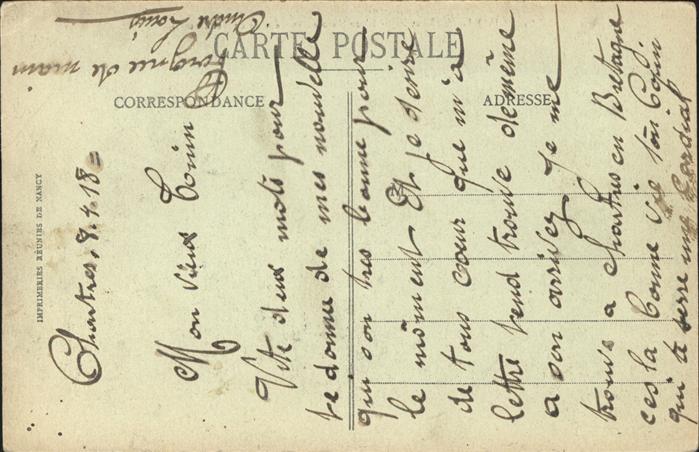 CARTE POSTALE
CORRESPONDANCE
ADRESSE
IMPRIMERIES RÉUNIES DE NANCY
Chartres, 8.4.18=
Mon vieux Couin
Vite deux mots pour
te donne de mes nouvelle
qui son tres bonne pour
le moment Et je desire
de tous cœur que m'a
lettre tend trouve de même
a son arrivez Je me
trouve a Chartres en Bretagne
ces la bonne vie ton Couin
qui te serre une cordial
Poignie de main
André Louis